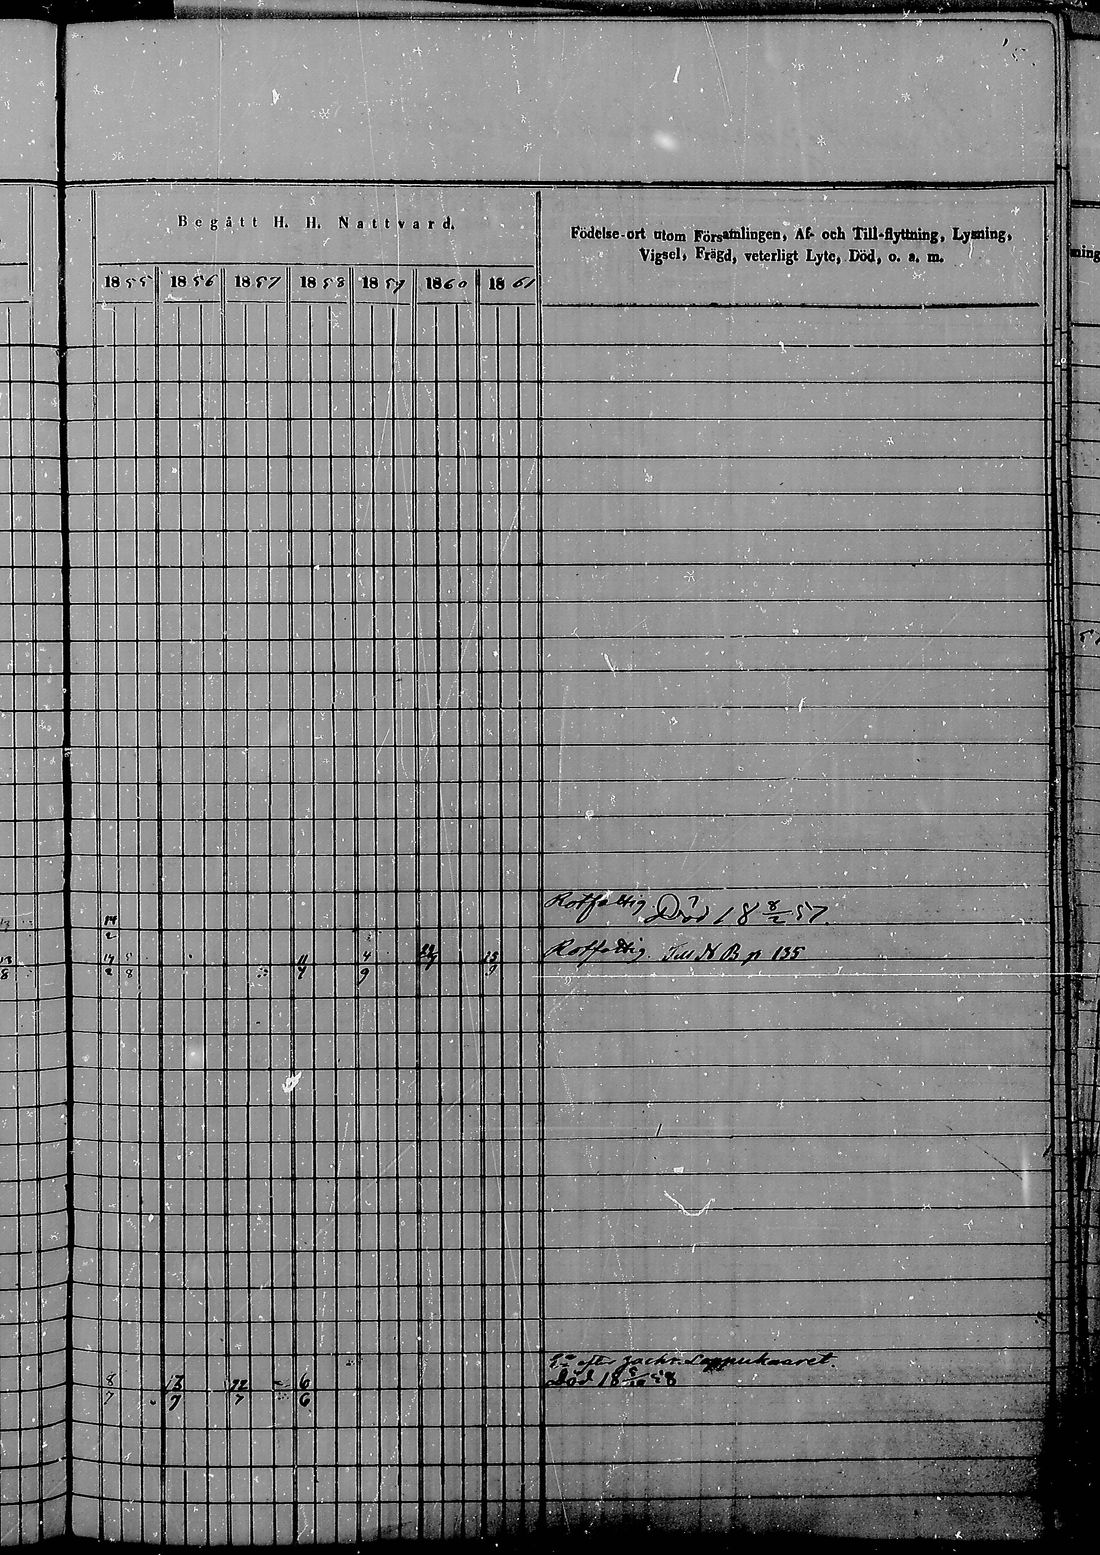 Begått H. H. Nattvard.
Födelse-ort utom Församlingen, Af- och Till-flyttning, Lysning,
Vigsel, Frägd, veterligt Lyte, Död, o. a. m.
1855 1856 1857 1858 1859 1860 1861
Rotfattig. Död 18 8/2 57.
14/2
Rotfattig. Till N B p 135
14/2 5/8 11/7 4/9 22/7 15/9
E:a efter Zachr.
Död 18 58
8/7 13/7 12/7 6/6